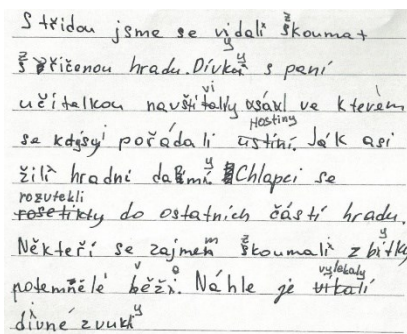 S třídou jsme se vidali škoumat
říčenou hradu. Dívky s paní
učitelkou navštívily sál ve kterém
Hostiny
se kdysy pořádali ustíní. Jak asi
žili hradní dámy. Chlapci se
rozutekli
do ostatních částí hradu.
Někteří se zajmem škoumali zbitky
potemnělé věži. Náhle je vylekaly
divné zvuky